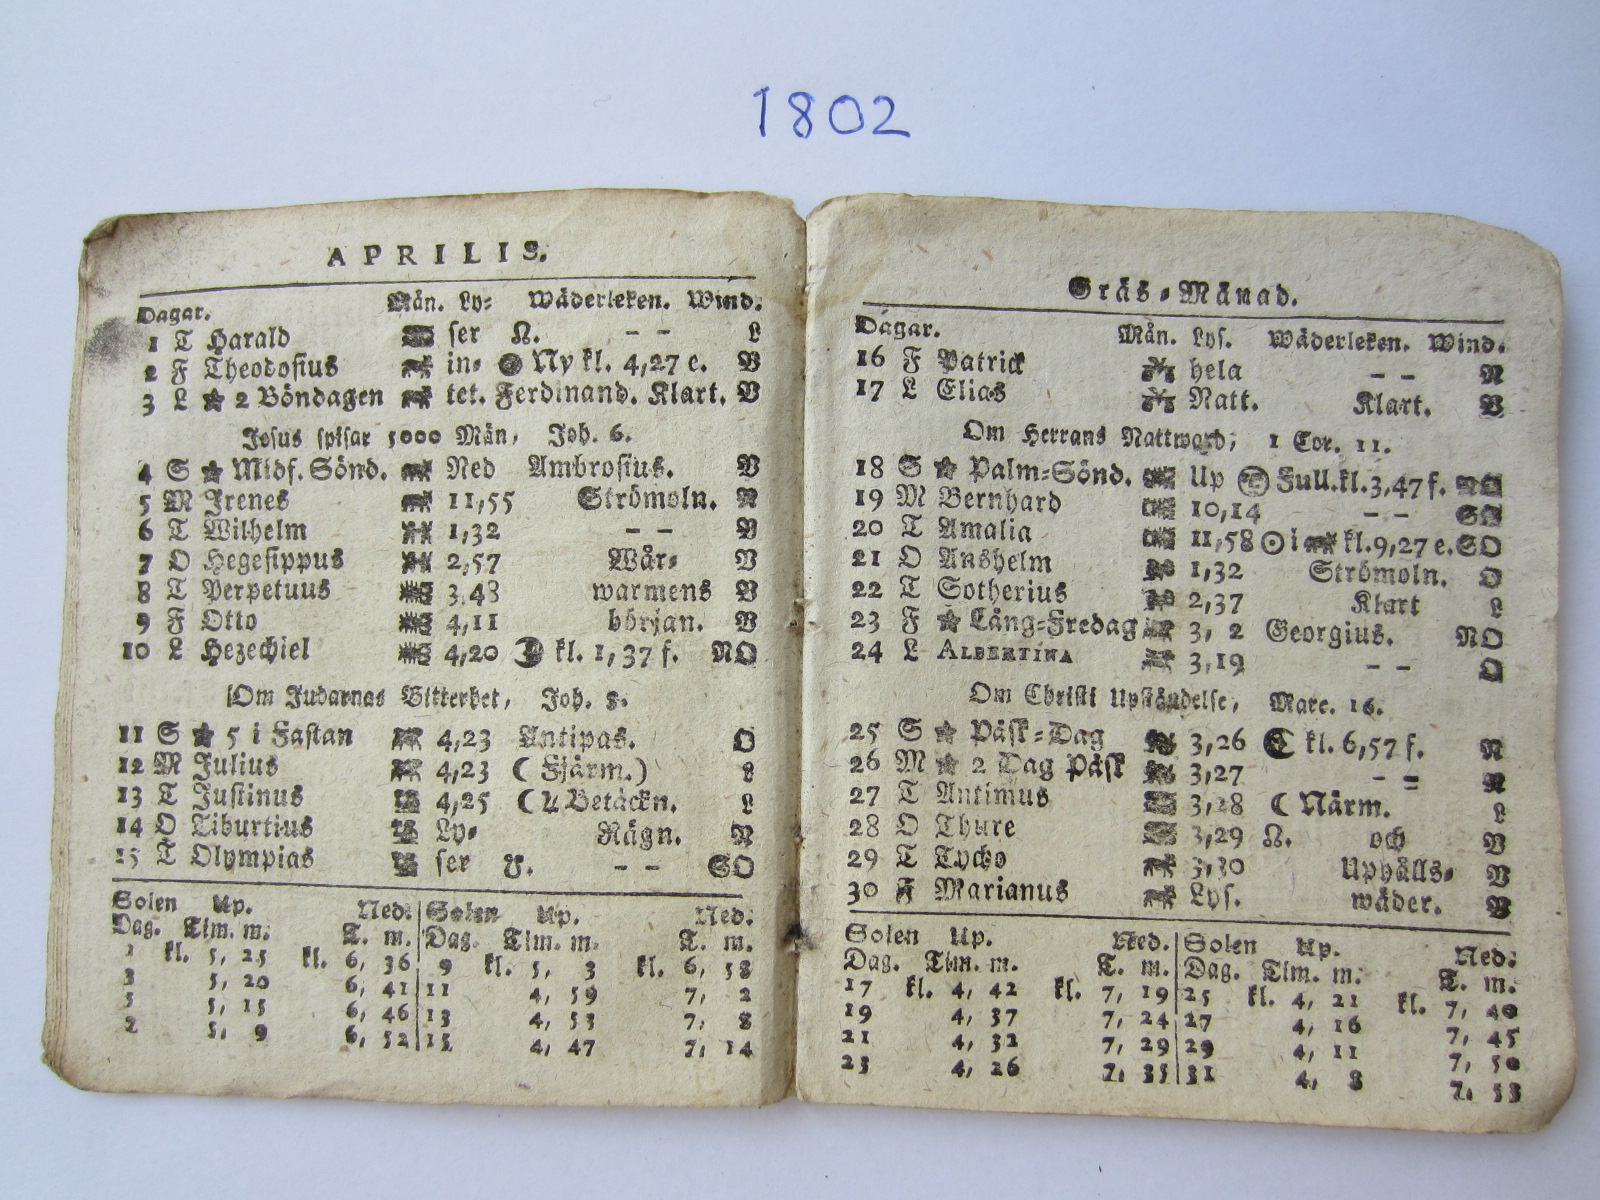 1802
APRILIS.
Dagar. Mån. Ly= Wäderleken. Wind.
1 T Harald ser ☊. – – L
2 F Theodosius in= Ny kl. 4,27 e. V
3 L ☆ 2 Böndagen tet. Ferdinand. Klart. V
Jesus spisar 5000 Män, Joh. 6.
4 S ☆ Midf. Sönd. Ned Ambrosius. V
5 M Irenes 11,55 Strömoln. N
6 T Wilhelm 1,32 – – V
7 O Hegesippus 2,57 Wår= V
8 T Perpetuus 3,48 warmens V
9 F Otto 4,11 början. V
10 L Hezechiel 4,20 ☽ kl. 1,37 f. NO
Om Judarnas Bitterhet, Joh. 8.
11 S ☆ 5 i Fastan 4,23 Antipas. O
12 M Julius 4,23 ( Fjärm.)
13 T Justinus 4,25 ☾ ♃ Betäckn. L
14 O Tiburtius Ly= Rägn. N
15 T Olympias ser ☋. – – SO
Solen Up. Ned: Solen Up. Ned:
Dag. Tim. m. T. m. Dag. Tim. m. T. m.
1 kl. 5, 25 kl. 6, 36 9 kl. 5, 3 kl. 6, 58
3 5, 20 6, 41 11 4, 59 7, 2
5 5, 15 6, 46 13 4, 53 7, 8
5, 9 6, 52 15 4, 47 7, 14
Gräs=Månad.
Dagar. Mån. Lys. Wäderleken. Wind.
16 F Patrick hela – – N
17 L Elias Natt. Klart. V
Om Herrans Nattward, 1 Cor. 11.
18 S ☆ Palm=Sönd. Up Full.kl.3,47 f. NO
19 M Bernhard 10,14 – – SO
20 T Amalia 11,58 ☉ i kl.9,27 e. SO
21 O Anshelm 1,32 Strömoln. O
22 T Sotherius 2,37 Klart L
23 F ☆ Lång=Fredag 3, 2 Georgius. NO
24 L ALBERTINA 3,19 – – O
Om Christi Upståndelse, Marc. 16.
25 S ☆ Påsk=Dag 3,26 ☾ kl. 6,57 f. N
26 M ☆ 2 Dag Påsk 3,27 – = N
27 T Antimus 3,28 ☾ Närm. L
28 O Thure 3,29 ☊. och V
29 T Tycho 3,30 Uphålls= V
30 F Marianus Lys. wäder. V
Solen Up. Ned. Solen Up. Ned:
Dag. Tim. m. T. m. Dag. Tim. m. T. m.
17 kl. 4, 42 kl. 7, 19 25 kl. 4, 21 kl. 7, 40
19 4, 37 7, 24 27 4, 16 7, 45
21 4, 32 7, 29 29 4, 11 7, 50
23 4, 26 7, 35 31 4, 8 7, 53